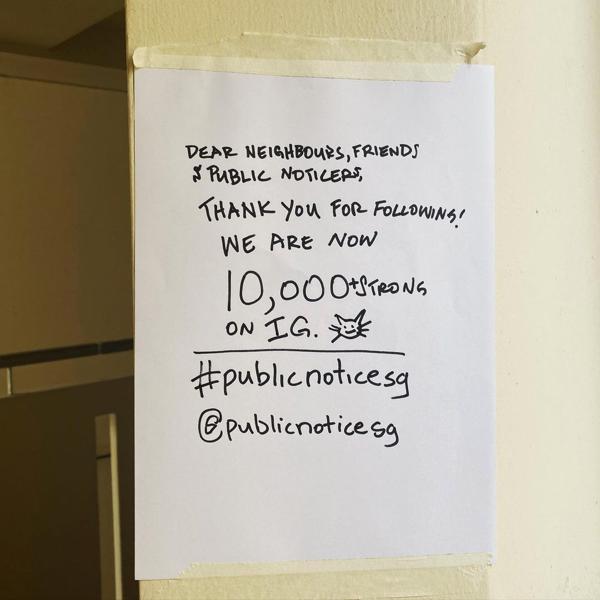 DEAR NEIGHBOURS, FRIENDS
& PUBLIC NOTICERS,
THANK YOU FOR FOLLOWING!
WE ARE NOW
10,000+ STRONG
ON IG.
#publicnoticesg
@publicnoticesg